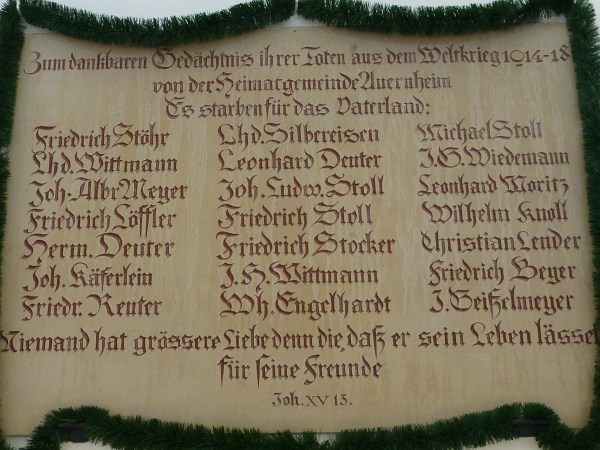 Zum dankbaren Gedächtnis ihrer Toten aus dem Weltkrieg 1914-18
von der Heimatgemeinde Auernheim
Es starben für das Vaterland:
Friedrich Stöhr Lhd. Silbereisen Michael Stoll
Lhd. Wittmann Leonhard Deuter J. G. Wiedemann
Joh. Albr Meyer Joh. Ludw. Stoll Leonhard Moritz
Friedrich Löffler Friedrich Stoll Wilhelm Knoll
Herm. Deuter Friedrich Stocker Christian Lender
Joh. Käferlein J. H. Wittmann Friedrich Beyer
Friedr. Reuter Wh. Engelhardt J. Geißelmeyer
Niemand hat grössere Liebe denn die, daß er sein Leben lässet
für seine Freunde
Joh. XV 13.